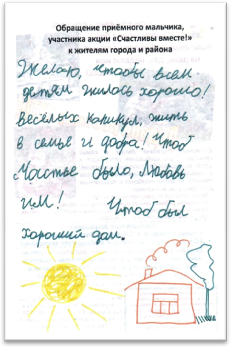 Обращение приёмного мальчика,
участника акции «Счастливы вместе!»
к жителям города и района
Желаю, чтобы всем
детям жилось хорошо!
весёлых каникул, жить
в семье и добра! Чтоб
счастье было, любовь
им! Чтоб был
хороший дом.